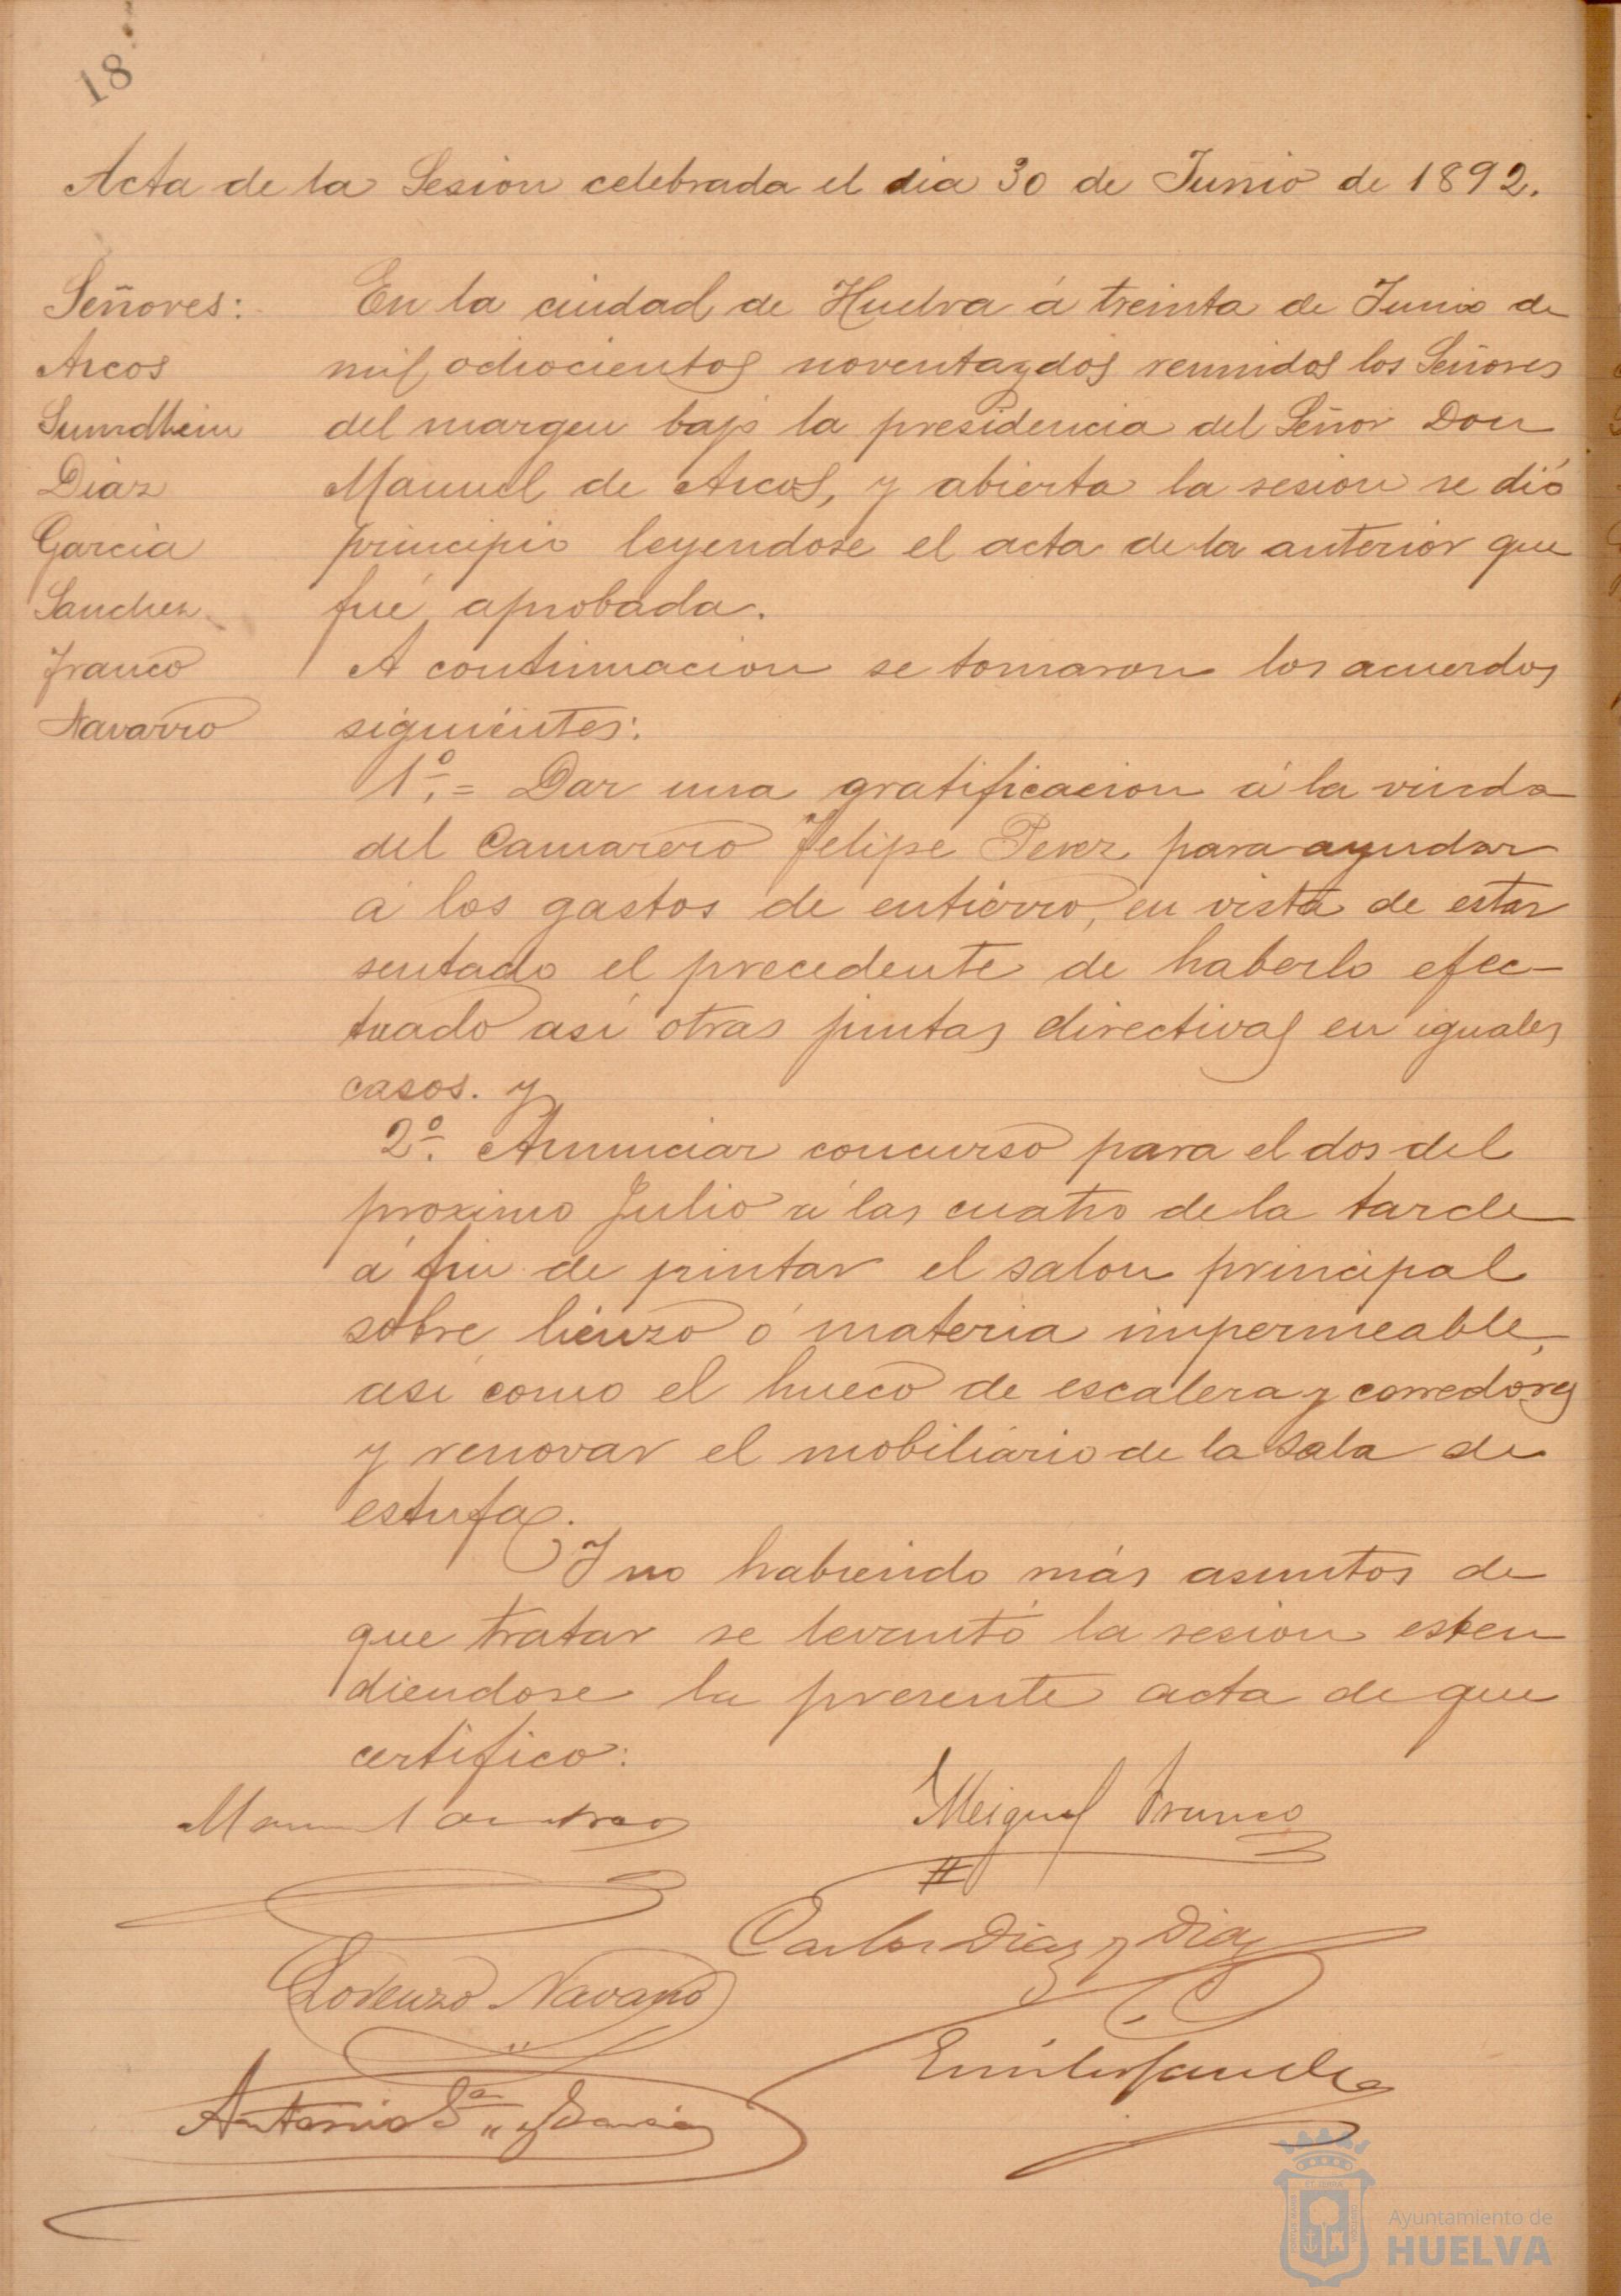 18
Acta de la Sesion celebrada el dia 30 de Junio de 1892.
Señores:
Arcos
Sundheim
Diaz
Garcia
Sanchez
Franco
Navarro
En la ciudad de Huelva á treinta de Junio de
mil ochocientos noventaydos reunidos los Señores
del margen bajo la presidencia del Señor Don
Manuel de Arcos, y abierta la sesion se dió
principio leyendose el acta de la anterior que
fué aprobada.
A continuacion se tomaron los acuerdos
siguientes:
1º.= Dar una gratificacion á la viuda
del Camarero Felipe Perez para ayudar
á los gastos de entierro, en vista de estar
sentado el precedente de haberlo efec-
tuado asi otras juntas directivas en iguales
casos. y
2º. Anunciar concurso para el dos del
proximo Julio á las cuatro de la tarde
á fin de pintar el salon principal
sobre lienzo ó materia impermeable,
asi como el hueco de escalera y corredores
y renovar el mobiliario de la sala de
estufa.
Y no habiendo más asuntos de
que tratar se levantó la sesion esten
diendose la presente acta de que
certifico:
Manuel de Arcos
Meiguel Franco
Carlos Diaz y Diaz
Lorenzo Navarro
Emilio Sanchez
Antonio Gª y Garcia
Ayuntamiento de
HUELVA